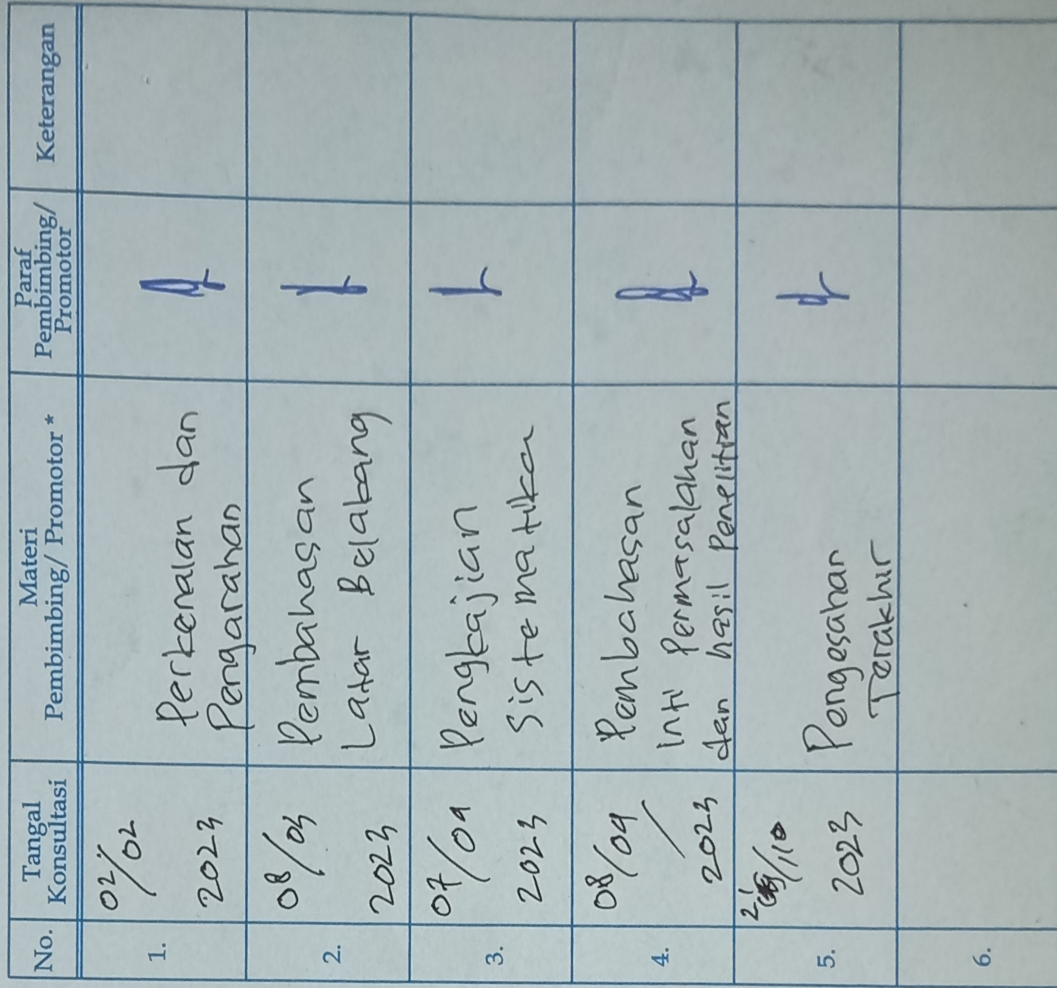 No.
Tangal
Konsultasi
Materi
Pembimbing/ Promotor *
Paraf
Pembimbing/
Promotor
Keterangan
1.
02/02
2023
Perkenalan dan
Pengarahan
2.
08/03
2023
Pembahasan
Latar Belakang
3.
07/09
2023
Pengkajian
Sistematika
4.
08/09
/
2023
Pembahasan
inti Permasalahan
dan hasil Penelitian
5.
/10
2023
Pengesahan
Terakhir
6.